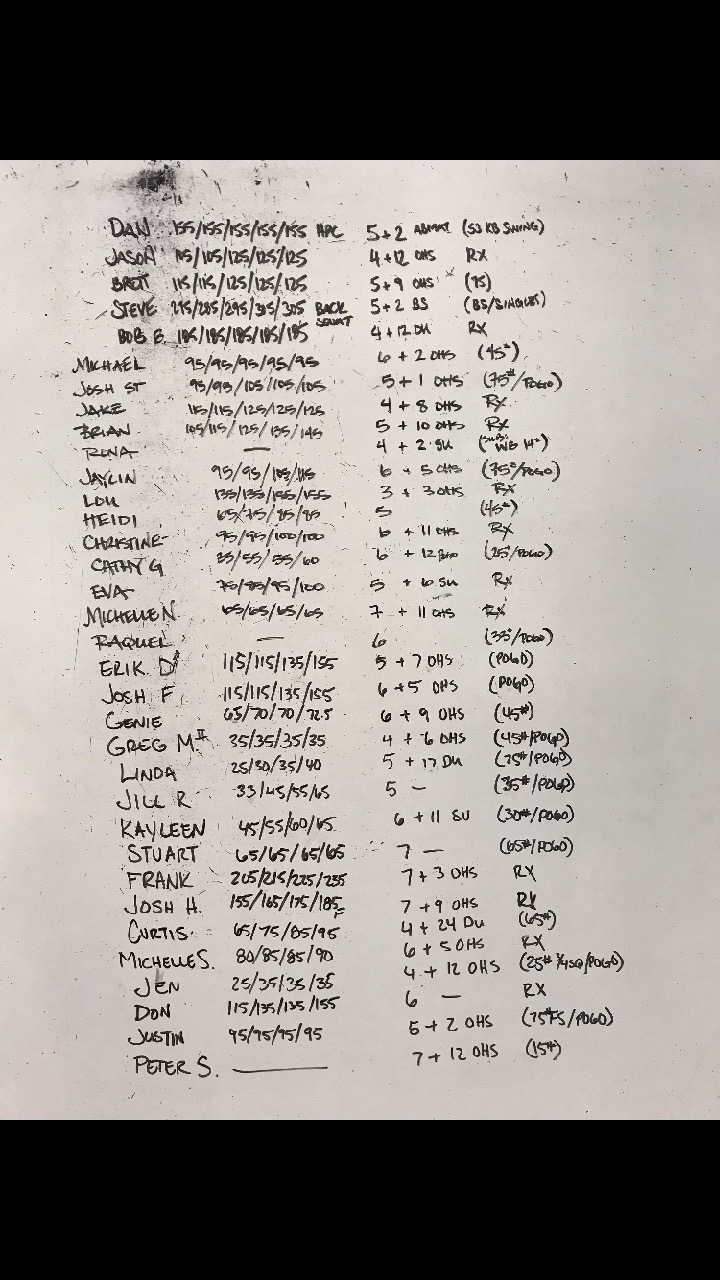 DAN 155/155/155/155/155 HPC 5+2 ABMAT (53 KB SWING)
JASON 105/125/125/125 4+12 OHS RX
BRETT 115/115/125/125/125 5+9 OHS (95)
STEVE /295/305/305 BACK SQUAT 5+2 BS (BS/SINGLES)
BOB B. 185/185/185/185/185 4+12 DU RX
MICHAEL 95/95/95/95/95 6+2 OHS (45#)
JOSH ST 95/95/105/105/105 5+1 OHS (75#/POGO)
JAKE 115/115/125/125/125 4+8 OHS RX
BRIAN 105/115/125/135/145 5+10 OHS RX
RONA — 4+2 SU WB 14#)
JAYLIN 95/95/105/115 6+5 OHS (75#/POGO)
LOU 135/135/155/155 3+3 OHS RX
HEIDI 65/75/85/85 5 (45#)
CHRISTINE 95/95/100/100 6+11 OHS RX
CATHY G 55/55/60 6+12 (25#/POGO)
EVA 75/85/95/100 5+6 SU RX
MICHELLE N 65/65/65/65 7+11 OHS RX
RAQUEL — 6 (35#/POGO)
ERIK D 115/115/135/155 5+7 OHS (POGO)
JOSH F 115/115/135/155 6+5 OHS (POGO)
GENIE 65/70/70/72.5 6+9 OHS (45#)
GREG M. II 35/35/35/35 4+6 OHS (45#/POGO)
LINDA 25/30/35/40 5+17 DU (75#/POGO)
JILL R 33/45/55/65 5 — (35#/POGO)
KAYLEEN 45/55/60/65 6+11 SU (30#/POGO)
STUART 65/65/65/65 7 — (65#/POGO)
FRANK 205/215/225/235 7+3 OHS RX
JOSH H. 155/165/175/185F 7+9 OHS RX
CURTIS 65/75/85/95 4+24 DU (65#)
MICHELLE S. 80/85/85/90 6+5 OHS RX
JEN 25/35/35/35 4+12 OHS (25# /POGO)
DON 115/135/135/155 6 — RX
JUSTIN 95/95/95/95 5+2 OHS (75# FS/POGO)
PETER S. — 7+12 OHS (15#)